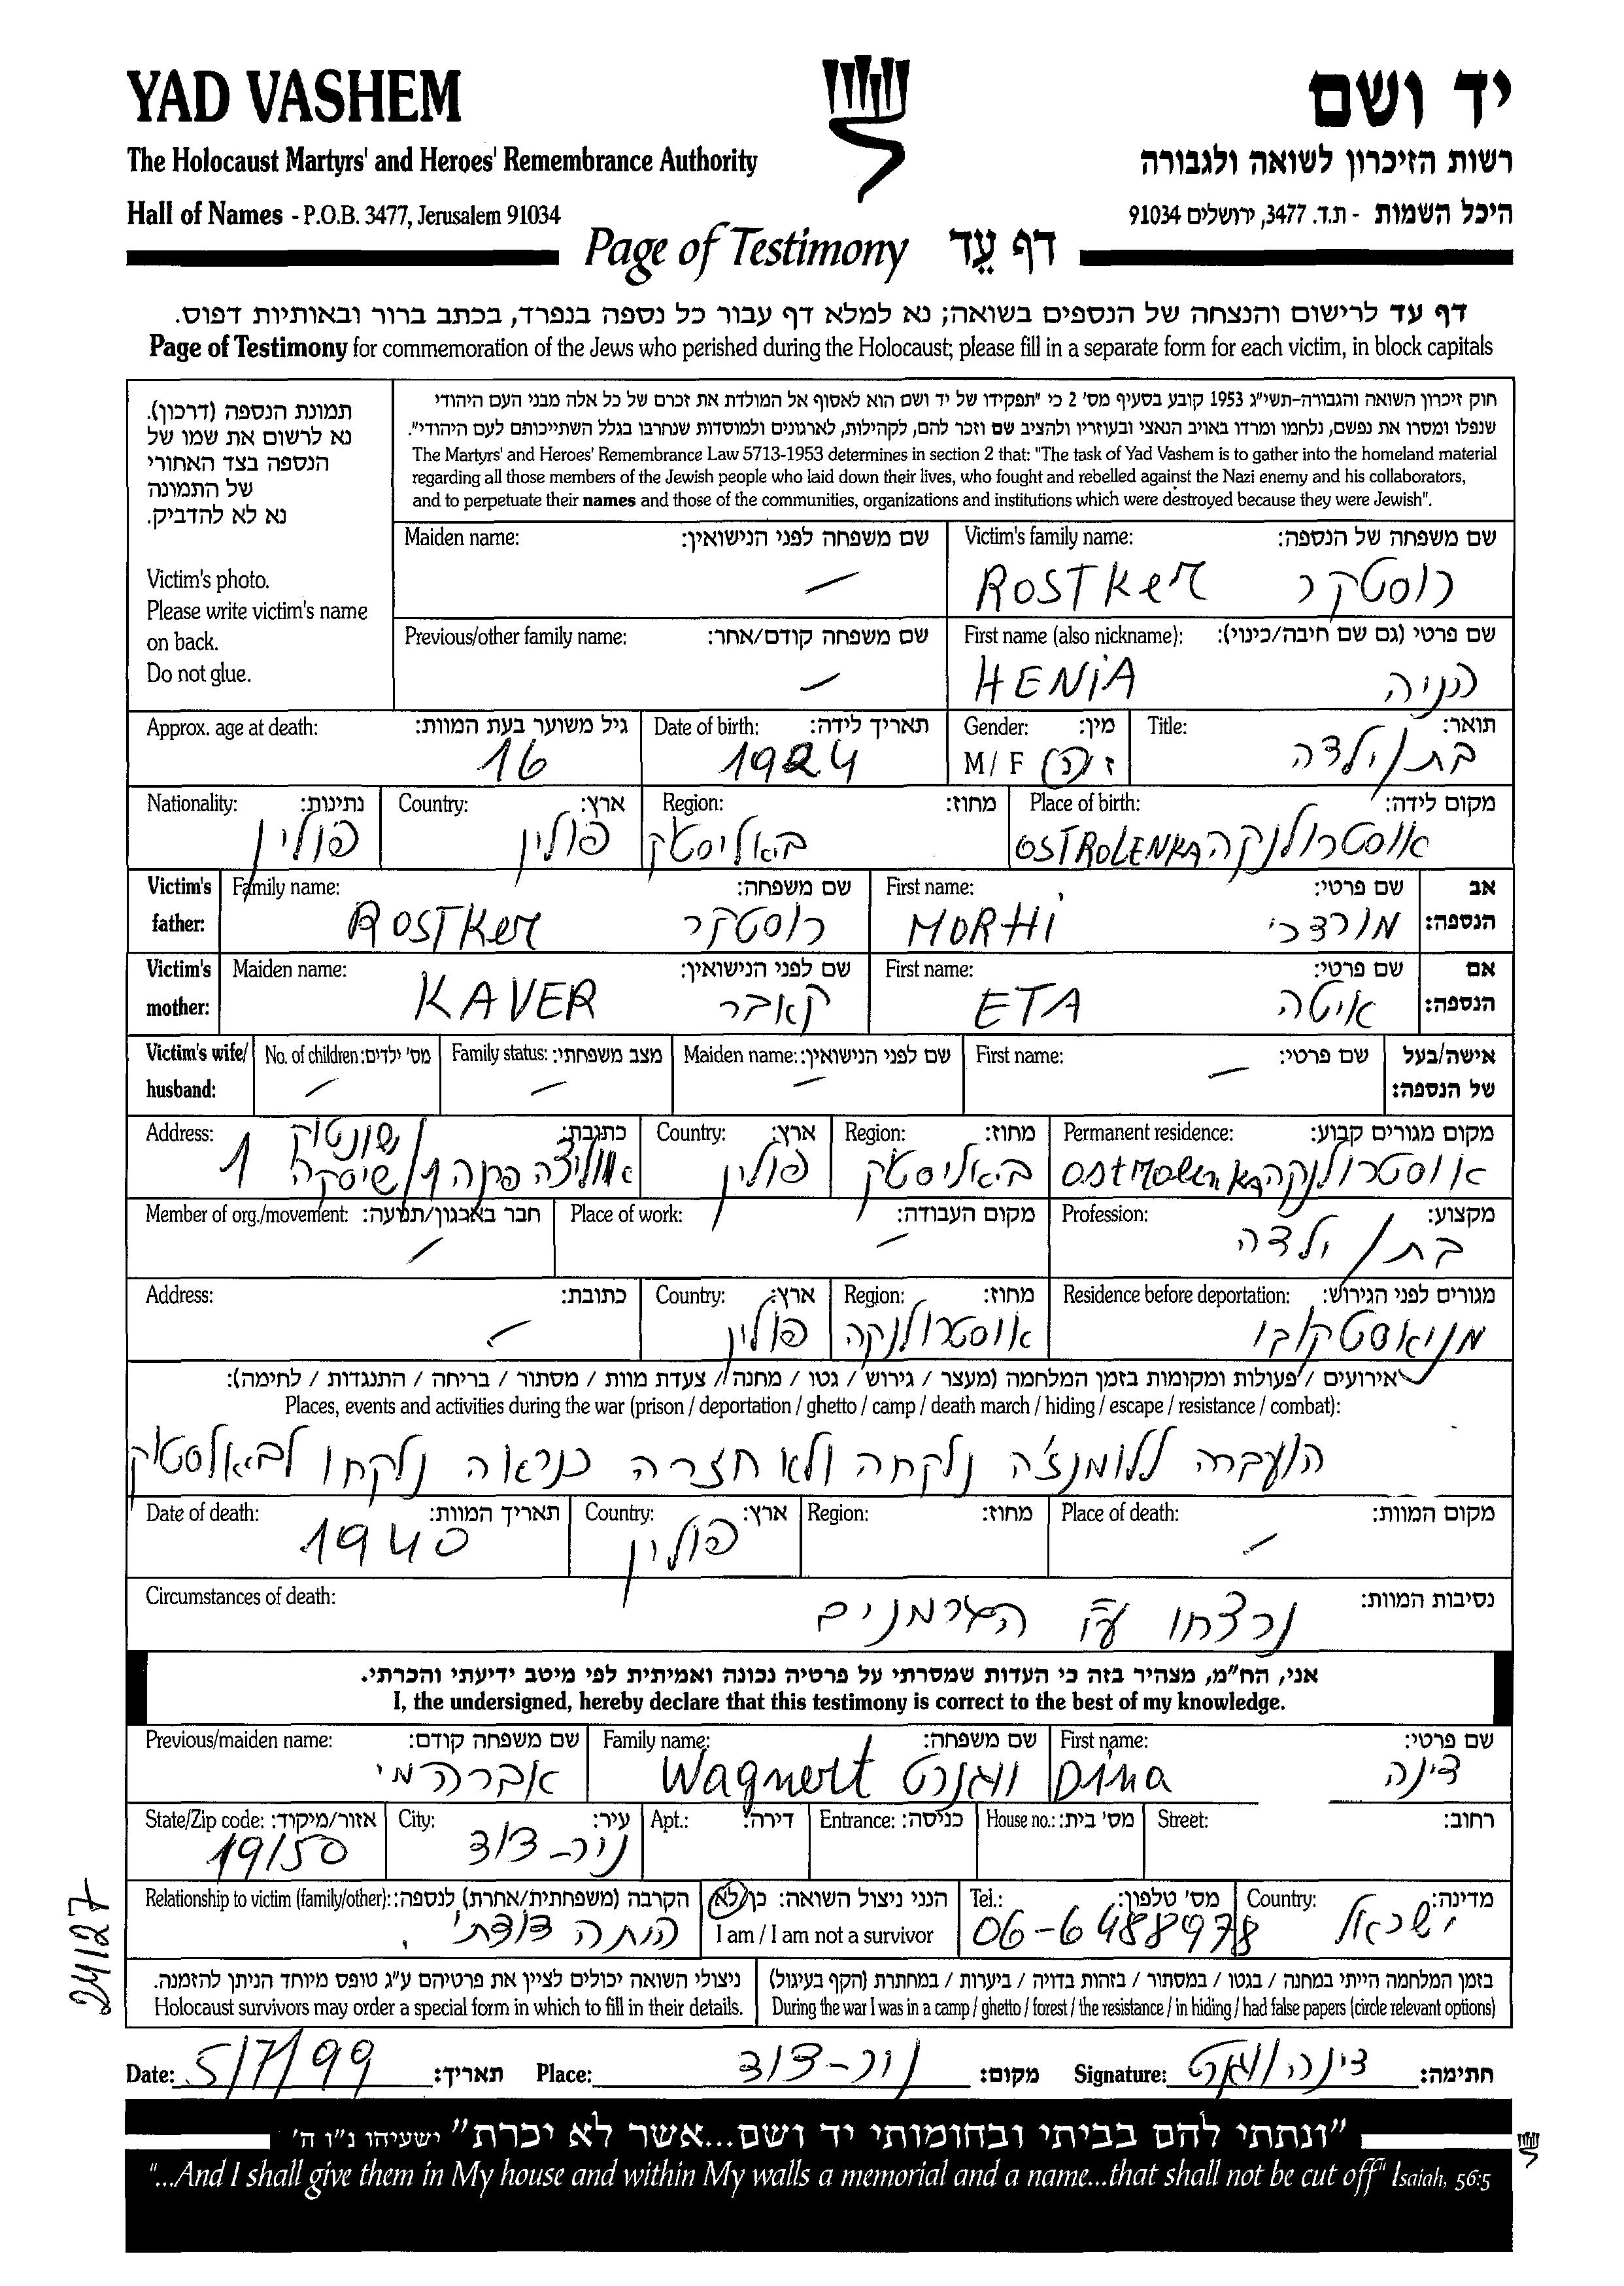 YAD VASHEM
יד ושם
The Holocaust Martyrs' and Heroes' Remembrance Authority
רשות הזיכרון לשואה ולגבורה
Hall of Names - P.O.B. 3477, Jerusalem 91034
היכל השמות - ת.ד. 3477, ירושלים 91034
Page of Testimony דף עֵד
דף עד לרישום והנצחה של הנספים בשואה; נא למלא דף עבור כל נספה בנפרד, בכתב ברור ובאותיות דפוס.
Page of Testimony for commemoration of the Jews who perished during the Holocaust; please fill in a separate form for each victim, in block capitals
תמונת הנספה (דרכון).
נא לרשום את שמו של
הנספה בצד האחורי
של התמונה
נא לא להדביק.
Victim's photo.
Please write victim's name
on back.
Do not glue.
חוק זיכרון השואה והגבורה-תשי"ג 1953 קובע בסעיף מס' 2 כי "תפקידו של יד ושם הוא לאסוף אל המולדת את זכרם של כל אלה מבני העם היהודי
שנפלו ומסרו את נפשם, נלחמו ומרדו באויב הנאצי ובעוזריו ולהציב שם וזכר להם, לקהילות, לארגונים ולמוסדות שנחרבו בגלל השתייכותם לעם היהודי".
The Martyrs' and Heroes' Remembrance Law 5713-1953 determines in section 2 that: "The task of Yad Vashem is to gather into the homeland material
regarding all those members of the Jewish people who laid down their lives, who fought and rebelled against the Nazi enemy and his collaborators,
and to perpetuate their names and those of the communities, organizations and institutions which were destroyed because they were Jewish".
Maiden name: שם משפחה לפני הנישואין: Victim's family name: שם משפחה של הנספה:
– ROSTKER רוסטקר
Previous/other family name: שם משפחה קודם/אחר: First name (also nickname): שם פרטי (גם שם חיבה/כינוי):
– HENiA הניה
Approx. age at death: גיל משוער בעת המוות: Date of birth: תאריך לידה: Gender: מין: Title: תואר:
16 1924 M/ F ז/נ בת/ילדה
Nationality: נתינות: Country: ארץ: Region: מחוז: Place of birth: מקום לידה:
פולין פולין באליסטק OSTROLENKA אוסטרולנקה
Victim's father: Family name: שם משפחה: First name: שם פרטי: אב הנספה:
ROSTKER רוסטקר MORHi מורדכי
Victim's mother: Maiden name: שם לפני הנישואין: First name: שם פרטי: אם הנספה:
KAVER קאבר ETA איטה
Victim's wife/ husband: No. of children: מס' ילדים: Family status: מצב משפחתי: Maiden name: שם לפני הנישואין: First name: שם פרטי: אישה/בעל של הנספה:
– – – –
Address: כתובת: Country: ארץ: Region: מחוז: Permanent residence: מקום מגורים קבוע:
1 פולין באליסטק OSTROLENKA אוסטרולנקה
Member of org./movement: חבר בארגון/תנועה: Place of work: מקום העבודה: Profession: מקצוע:
– – בת/ילדה
Address: כתובת: Country: ארץ: Region: מחוז: Residence before deportation: מגורים לפני הגירוש:
– פולין אוסטרולנקה מניאסטקובו
אירועים / פעולות ומקומות בזמן המלחמה (מעצר / גירוש / גטו / מחנה / צעדת מוות / מסתור / בריחה / התנגדות / לחימה):
Places, events and activities during the war (prison / deportation / ghetto / camp / death march / hiding / escape / resistance / combat):
הועברה ללומנז'ה נלקחה ולא חזרה כנראה נלקחו לבאלסטוק
Date of death: תאריך המוות: Country: ארץ: Region: מחוז: Place of death: מקום המוות:
1940 פולין –
Circumstances of death: נסיבות המוות:
נרצחו ע"י הגרמנים
אני, הח"מ, מצהיר בזה כי העדות שמסרתי על פרטיה נכונה ואמיתית לפי מיטב ידיעתי והכרתי.
I, the undersigned, hereby declare that this testimony is correct to the best of my knowledge.
Previous/maiden name: שם משפחה קודם: Family name: שם משפחה: First name: שם פרטי:
אברהמי Wagnert ווגנרט Dina דינה
State/Zip code: אזור/מיקוד: City: עיר: Apt.: דירה: Entrance: כניסה: House no.: מס' בית: Street: רחוב:
19150 ניר-דוד
Relationship to victim (family/other): הקרבה (משפחתית/אחרת) לנספה: הנני ניצול השואה: כן/לא Tel.: מס' טלפון: Country: מדינה:
היתה דודתי. I am / I am not a survivor 06-6488978 ישראל
ניצולי השואה יכולים לציין את פרטיהם ע"ג טופס מיוחד הניתן להזמנה.
Holocaust survivors may order a special form in which to fill in their details.
בזמן המלחמה הייתי במחנה / בגטו / במסתור / בזהות בדויה / ביערות / במחתרת (הקף בעיגול)
During the war I was in a camp / ghetto / forest / the resistance / in hiding / had false papers (circle relevant options)
24127
Date: 5/7/99 תאריך: Place: ניר-דוד מקום: Signature: דינה ווגנרט חתימה:
"ונתתי להם בביתי ובחומותי יד ושם...אשר לא יכרת" ישעיהו נ"ו ה'
"...And I shall give them in My house and within My walls a memorial and a name...that shall not be cut off" Isaiah, 56:5